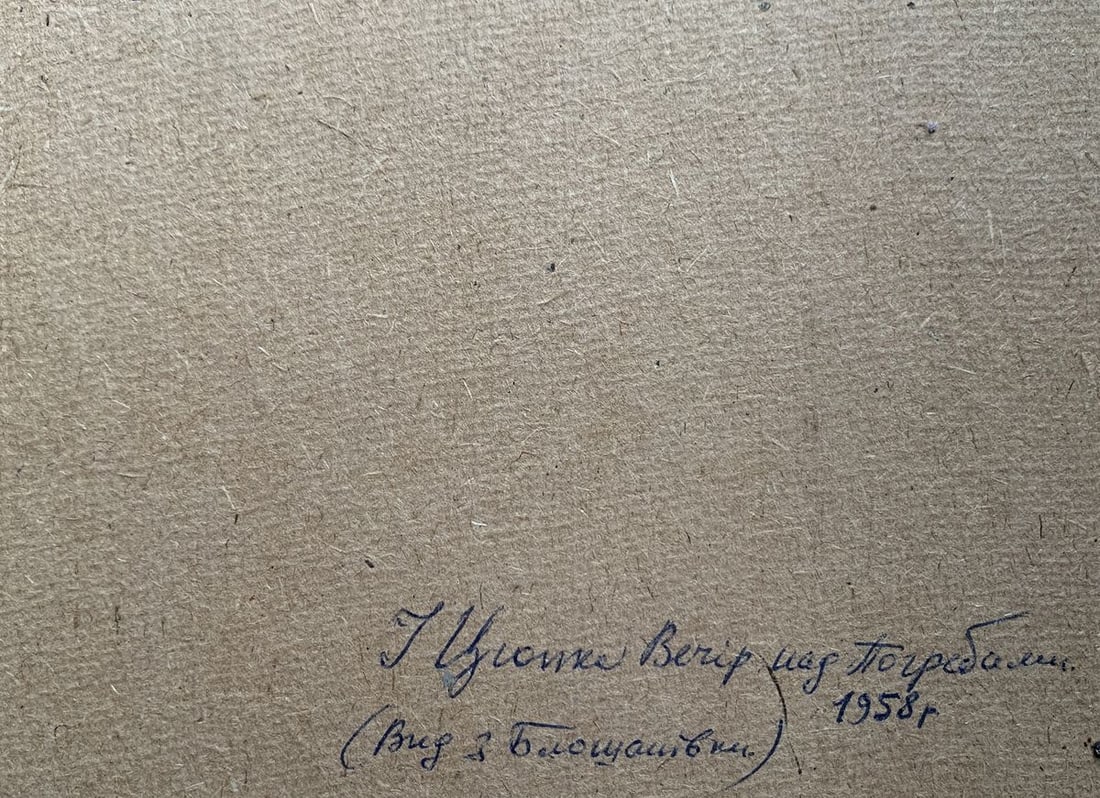 І Цюпка Вечір над Погребами.
1958 р
(Вид з Блощатівки.)